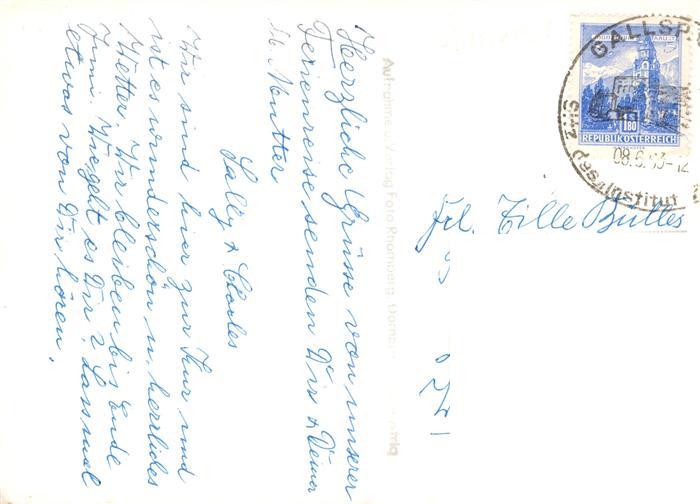 Herzliche Grüsse von unserer
Ferienreise senden Dir & Deiner
lb. Mutter
Sally & Charles
Wir sind hier zur Kur und
ist es wunderschön u. herrliches
Wetter. Wir bleiben bis Ende
Juni. Wie geht es Dir? Lass mal
etwas von Dir hören.
Aufnahme u. Verlag Foto Rhomberg, Dornbirn
GALLSP
Sitz des Institut
08.6.63-12
1.80
REPUBLIK ÖSTERREICH
Frl. Tille Bülles